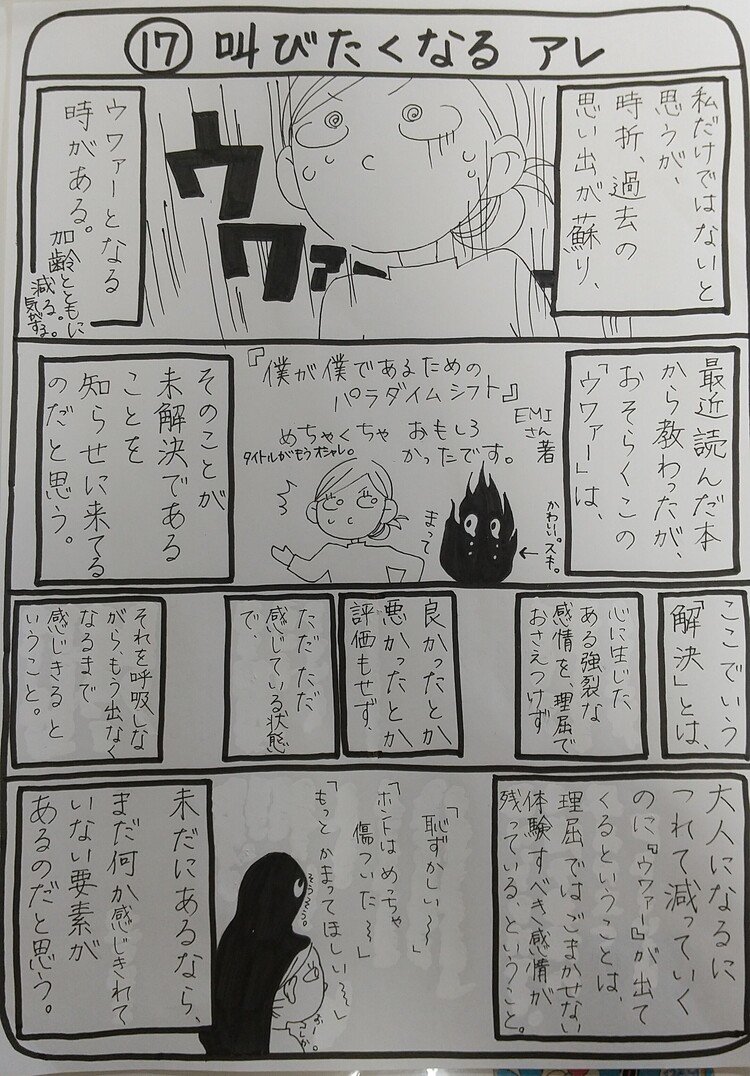 ⑰ 叫びたくなる アレ
私だけではないと
思うが、
時折、過去の
思い出が蘇り、
ウワァー
ウワァーとなる
時がある。
加齢とともに
減る。
気がする。
最近読んだ本
から教わったが、
おそらくこの
「ウワァー」は、
『僕が僕であるための
パラダイムシフト』
EMIさん著
めちゃくちゃ おもしろ
かったです。
タイトルがもうオシャレ。
まって
かわいい。スキ。
そのことが
未解決である
ことを
知らせに来てる
のだと思う。
ここでいう
「解決」とは、
心に生じた
ある強裂な
感情を、理屈で
おさえつけず
良かったとか
悪かったとか
評価もせず、
ただ ただ
感じている状態
で、
それを呼吸しな
がら、もう出なく
なるまで
感じきる と
いうこと。
大人になるに
つれて減っていく
のに『ウワァー』が出て
くるということは、
理屈ではごまかせない
体験すべき感情が
残っている、ということ。
「恥ずかしい〜」
「ホントはめっちゃ
傷ついた〜」
「もっとかまってほしい〜」
そうそう。
未だにあるなら、
まだ何か感じきれて
いない要素が
あるのだと思う。